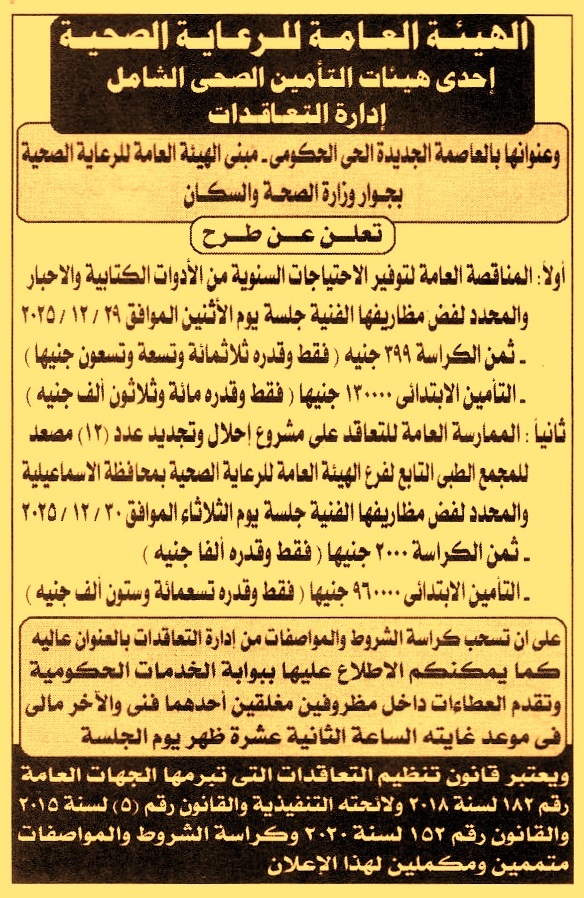 الهيئة العامة للرعاية الصحية
إحدى هيئات التأمين الصحى الشامل
إدارة التعاقدات
وعنوانها بالعاصمة الجديدة الحى الحكومى - مبنى الهيئة العامة للرعاية الصحية
بجوار وزارة الصحة والسكان
تعلن عن طرح
أولاً: المناقصة العامة لتوفير الاحتياجات السنوية من الأدوات الكتابية والاحبار
والمحدد لفض مظاريفها الفنية جلسة يوم الأثنين الموافق ٢٩ / ١٢ / ٢٠٢٥
- ثمن الكراسة ٣٩٩ جنيه ( فقط وقدره ثلاثمائة وتسعة وتسعون جنيها )
- التأمين الابتدائى ١٣٠٠٠٠ جنيها ( فقط وقدره مائة وثلاثون ألف جنيه )
ثانياً : الممارسة العامة للتعاقد على مشروع إحلال وتجديد عدد (١٢) مصعد
للمجمع الطبى التابع لفرع الهيئة العامة للرعاية الصحية بمحافظة الاسماعيلية
والمحدد لفض مظاريفها الفنية جلسة يوم الثلاثاء الموافق ٣٠ / ١٢ / ٢٠٢٥
- ثمن الكراسة ٢٠٠٠ جنيها ( فقط وقدره ألفا جنيه )
- التأمين الابتدائى ٩٦٠٠٠٠ جنيها ( فقط وقدره تسعمائة وستون ألف جنيه )
على ان تسحب كراسة الشروط والمواصفات من إدارة التعاقدات بالعنوان عاليه
كما يمكنكم الاطلاع عليها ببوابة الخدمات الحكومية
وتقدم العطاءات داخل مظروفين مغلقين أحدهما فنى والآخر مالى
فى موعد غايته الساعة الثانية عشرة ظهر يوم الجلسة
ويعتبر قانون تنظيم التعاقدات التى تبرمها الجهات العامة
رقم ١٨٢ لسنة ٢٠١٨ ولائحته التنفيذية والقانون رقم (٥) لسنة ٢٠١٥
والقانون رقم ١٥٢ لسنة ٢٠٢٠ وكراسة الشروط والمواصفات
متممين ومكملين لهذا الإعلان